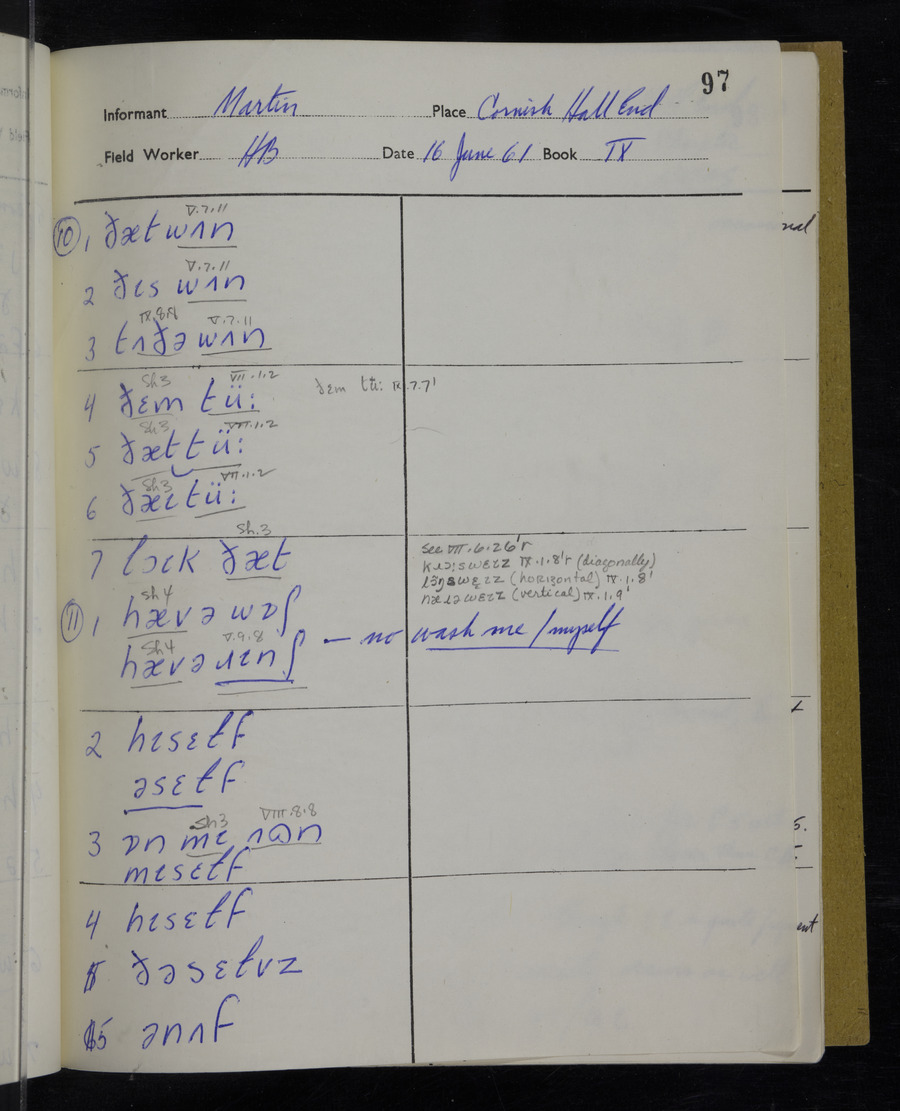 97
Informant Martin Place Cornish Hall End
Field Worker HB Date 16 June 61 Book IX
V.7.11
⑩ 1 ðæt wʌn
V.7.11
2 ðɩs wʌn
IX.8.8 V.7.11
3 tʌðə wʌn
Sh3 VII.1.2
4 ðɛm tüː ðɛm tüː IX.7.7'
Sh3 VII.1.2
5 ðæt tüː
Sh3 VII.1.2
6 ðæɩ tüː
Sh.3
7 lɔɩk ðæt
see VII.6.26'r
kɹɔːswɛɩz IX.1.8'r (diagonally)
(horizontal) IX.1.8'
(vertical) IX.1.9'
Sh4
⑪ 1 hævə wɒʃ
Sh4 V.9.8
hævə ɹɩnʃ — no wash me / myself
2 hɩsɛɫf
əsɛɫf
Sh3 VIII.8.8
3 ɒn mɩ
mɩsɛɫf
4 hɩsɛɫf
ðəsɛɫvz
5 ənʌf